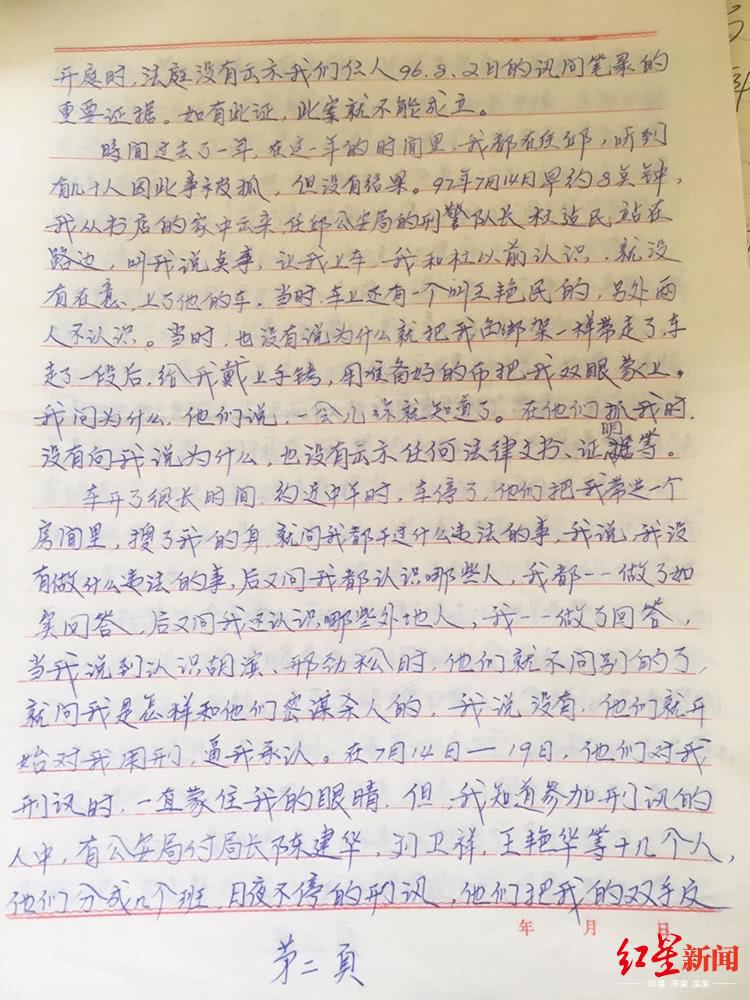 开庭时，法庭没有出示我们任人96.8、2日的讯问笔录的
重要证据。如有此证，此案就不能成立。
时间过去了一年，在这一年的时间里，我都在任邱，听到
有几十人因此事被抓，但没有结果。97年7月14日早约8点钟，
我从书店的家中出来，任邱公安局的刑警队长杜造民站在
路边，叫我说点事，让我上车，我和杜以前认识，就没
有在意，上了他的车。当时，车上还有一个叫王艳民的，另外两
人不认识。当时，也没有说为什么就把我向绑架一样带走了，车
走了一段后，给我戴上手铐，用准备好的布把我双眼蒙上。
我问为什么，他们说，一会儿你就知道了。在他们抓我时，
没有向我说为什么，也没有出示任何法律文书、证明等。
车开了很长时间，约近中午时，车停了，他们把我带进一个
房间里，搜了我的身，就问我都干过什么违法的事，我说，我没
有做什么违法的事，后又问我都认识哪些人，我都一一做了如
实回答，后又问我还认识哪些外地人，我一一做了回答，
当我说到认识胡滨、邢劲松时，他们就不问别的了，
就问我是怎样和他们密谋杀人的，我说没有，他们就开
始对我用刑，逼我承认。在7月14日—19日，他们对我
刑讯时，一直蒙住我的眼睛，但，我知道参加刑讯的
人中，有公安局付局长陈建华，刘卫祥，王艳华等十几个人，
他们分成几个班，日夜不停的刑讯，他们把我的双手反
年 月 日
第二页
红星新闻